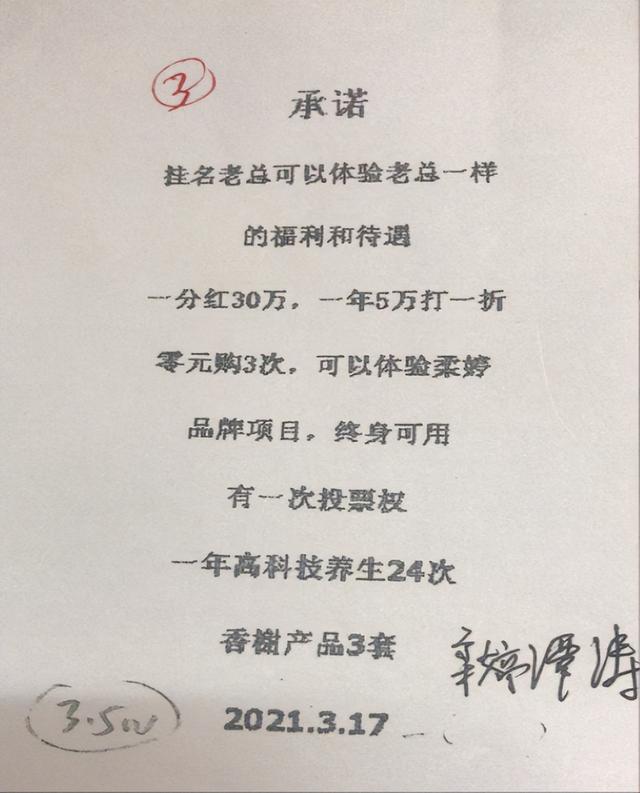 3
承诺
挂名老总可以体验老总一样
的福利和待遇
一分红30万，一年5万打一折
零元购3次，可以体验柔婷
品牌项目，终身可用
有一次投票权
一年高科技养生24次
香榭产品3套
2021.3.17